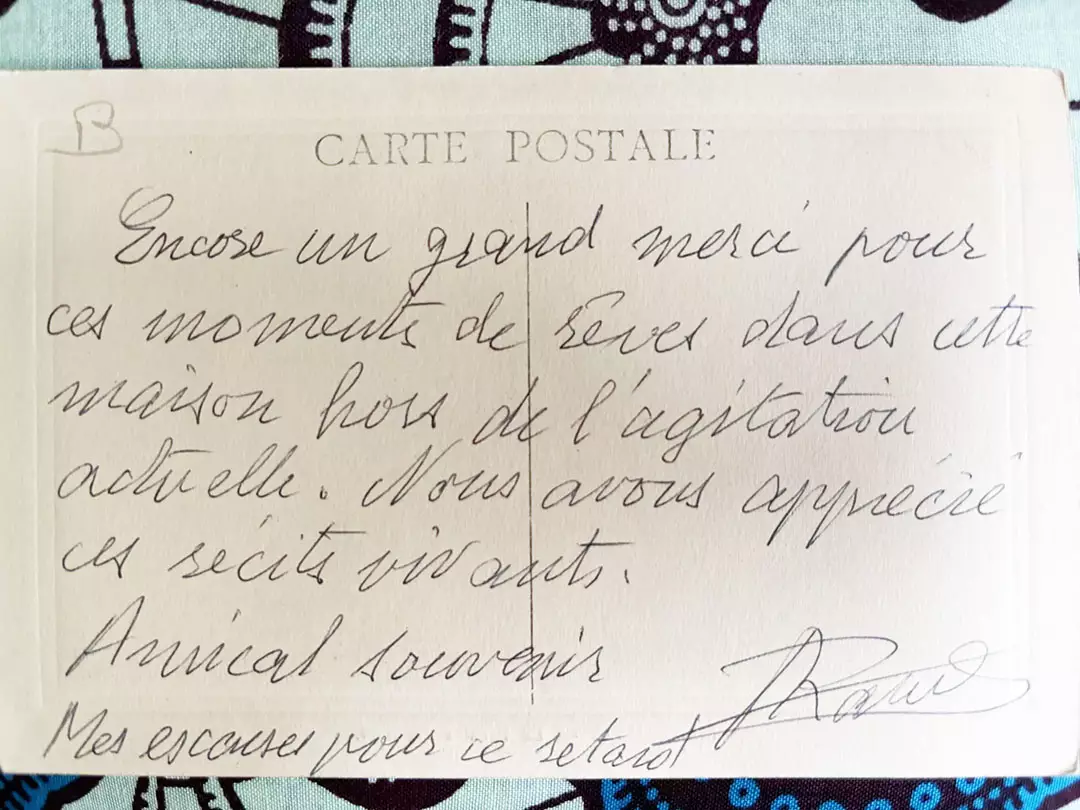 B
CARTE POSTALE
Encore un grand merci pour
ces moments de rêves dans cette
maison hors de l'agitation
actuelle. Nous avons apprécié
ces récits vivants.
Amical souvenir
Mes escuses pour ce retard